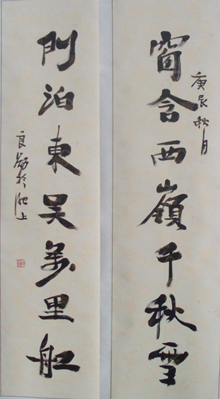 窗含西嶺千秋雪
庚辰秋月
門泊東吴萬里船